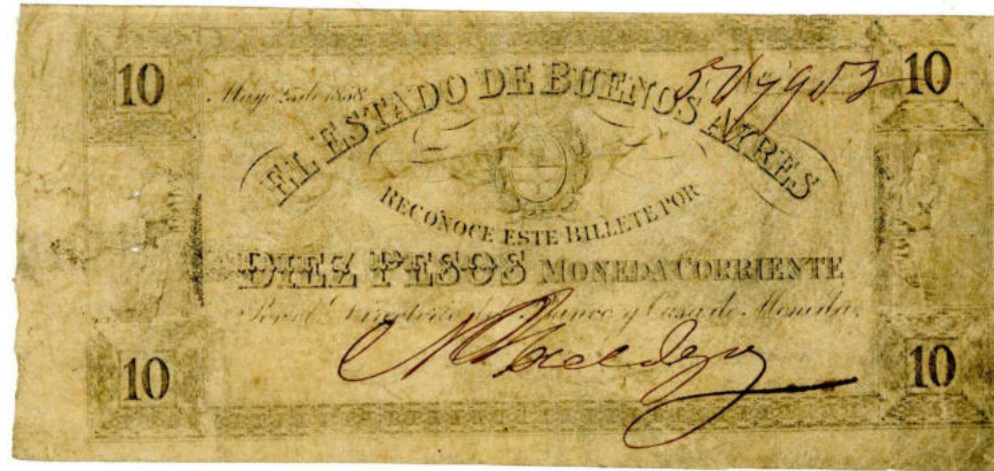 10
10
Mayo 25 de 1858
EL ESTADO DE BUENOS AYRES
RECONOCE ESTE BILLETE POR
DIEZ PESOS MONEDA CORRIENTE
Por el Directorio del Banco y Casa de Moneda
10
10